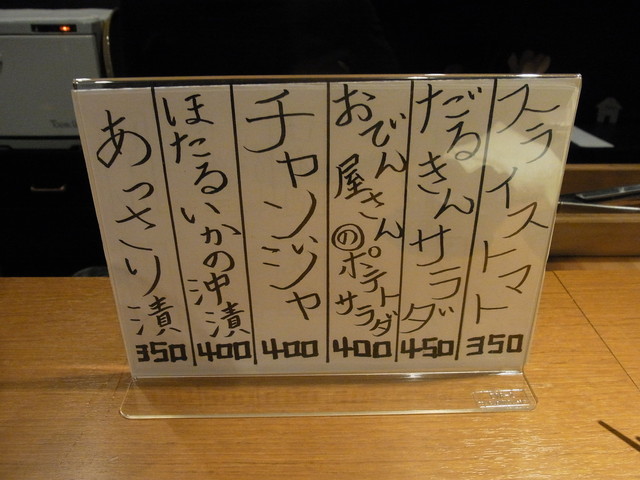 スライストマト
350
だるきんサラダ
450
おでん屋さん
のポテトサラダ
400
チャンジャ
400
ほたるいかの沖漬
400
あっさり漬
350